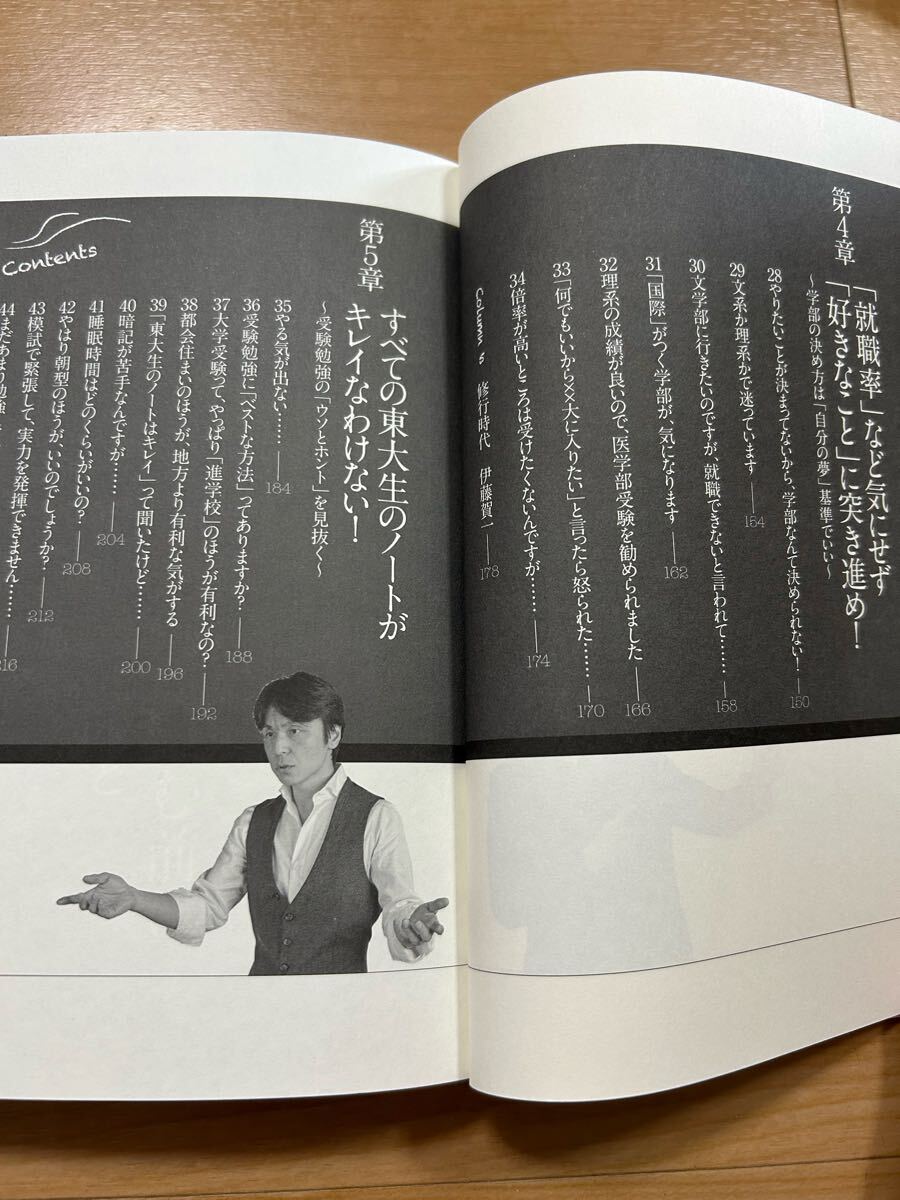 第4章
「就職率」など気にせず
「好きなこと」に突き進め!
〜学部の決め方は「自分の夢」基準でいい〜
28 やりたいことが決まってないから、学部なんて決められない! 150
29 文系か理系かで迷っています 154
30 文学部に行きたいのですが、就職できないと言われて…… 158
31 「国際」がつく学部が、気になります 162
32 理系の成績が良いので、医学部受験を勧められました 166
33 「何でもいいから××大に入りたい」と言ったら怒られた…… 170
34 倍率が高いところは受けたくないんですが…… 174
Column 修行時代 伊藤賀一 178
第5章
すべての東大生のノートが
キレイなわけない!
〜受験勉強の「ウソとホント」を見抜く〜
35 やる気が出ない…… 184
36 受験勉強に「ベストな方法」ってありますか? 188
37 大学受験って、やっぱり「進学校」のほうが有利なの? 192
38 都会住まいのほうが、地方より有利な気がする 196
39 「東大生のノートはキレイ」って聞いたけど…… 200
40 暗記が苦手なんですが…… 204
41 睡眠時間はどのくらいがいいの? 208
42 やはり朝型のほうが、いいのでしょうか? 212
43 模試で緊張して、実力を発揮できません…… 216
44 まだあまり勉強
Contents